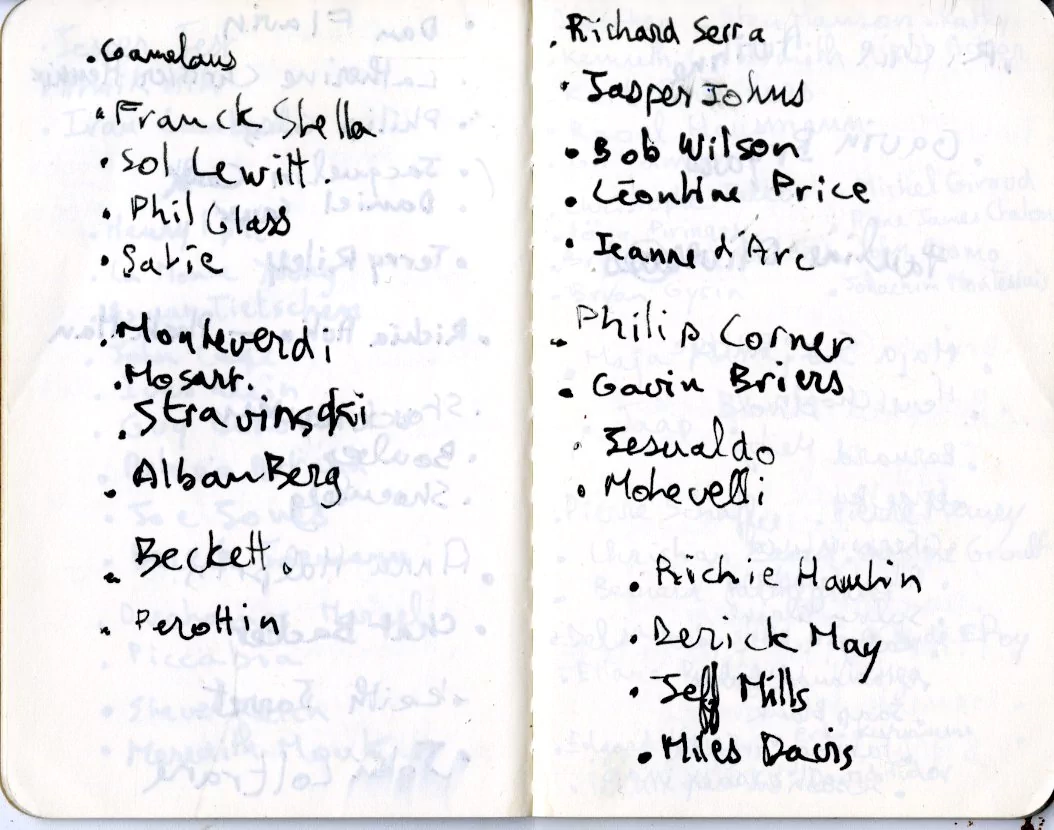 . Coamelaus
. Franck Stella
. Sol Lewitt.
. Phil Glass
. Satie
. Monteverdi
. Mosart.
. Stravinski
. Alban Berg
. Beckett.
. Perottin
. Richard Serra
. Jasper Johns
. Bob Wilson
. Léontine Price
. Jeanne d'Arc
. Philip Corner
. Gavin Briers
. Jesualdo
. Mohevelli
. Richie Hawtin
. Derick May
. Jeff Mills
. Miles Davis